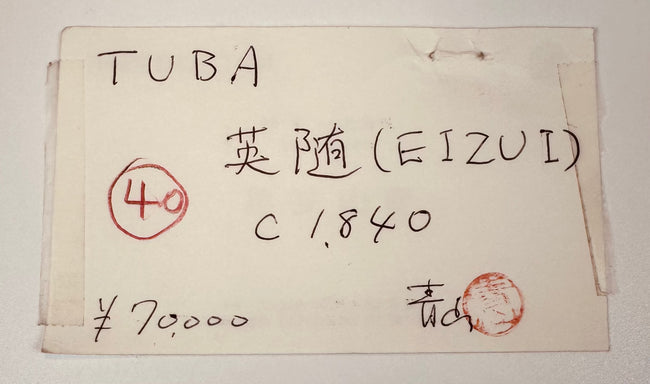 TUBA
英随(EIZUI)
40
C 1,840
¥70,000
青山